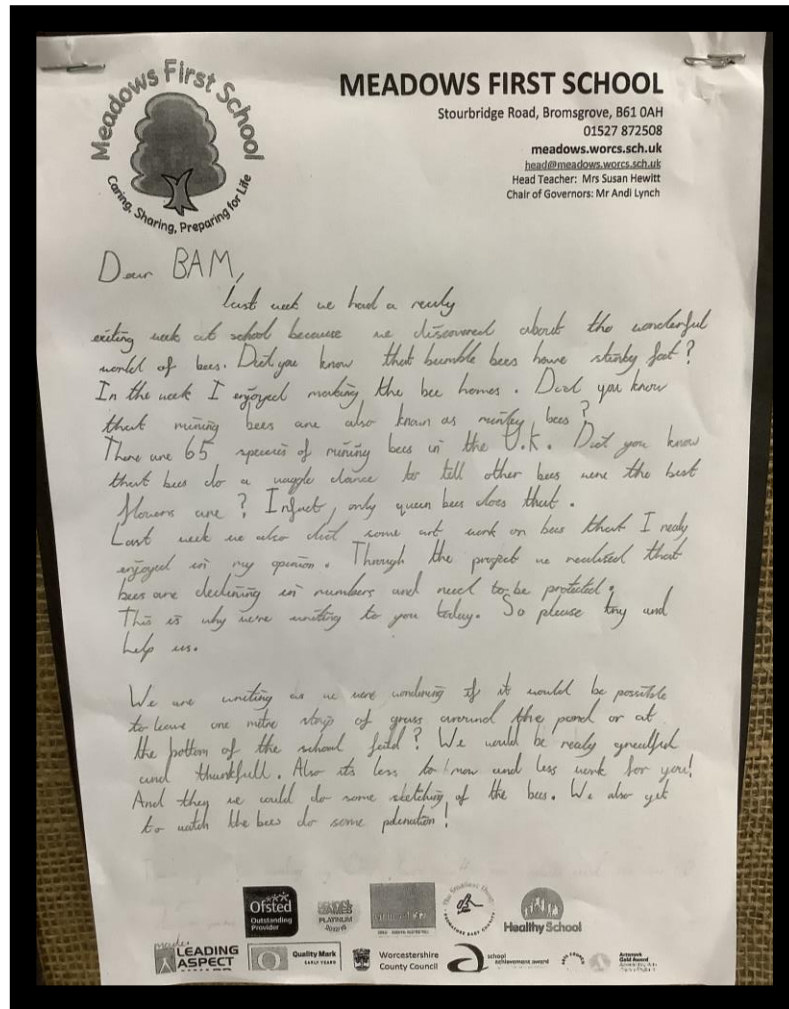 Meadows First School
Caring, Sharing, Preparing for Life
MEADOWS FIRST SCHOOL
Stourbridge Road, Bromsgrove, B61 0AH
01527 872508
meadows.worcs.sch.uk
head@meadows.worcs.sch.uk
Head Teacher: Mrs Susan Hewitt
Chair of Governors: Mr Andi Lynch
Dear BAM,
Last week we had a realy
exiting week at school because we discovered about the wonderful
world of bees. Did you know that bumble bees have stinky feet?
In the week I enjoyed making the bee homes. Did you know
that mining bees are also known as bees?
There are 65 species of mining bees in the U.K. Did you know
that bees do a waggle dance to tell other bees were the best
flowers are? Infact, only queen bees does that.
Last week we also did some art work on bees that I realy
enjoyed in my opinion. Through the project we realised that
bees are declining in numbers and need to be protected.
This is why we're writing to you today. So please try and
help us.
We are writing as we were wondering if it would be possible
to leave one metre strips of grass around the pond or at
the bottom of the school feild? We would be realy
and thankfull. Also its less to mow and less work for you!
And they we could do some sketching of the bees. We also get
to watch the bees do some !
Ofsted
Outstanding
Provider
PLATINUM
Healthy School
LEADING
ASPECT
Quality Mark
EARLY YEARS
Worcestershire
County Council
school
achievement award
Artsmark
Gold Award